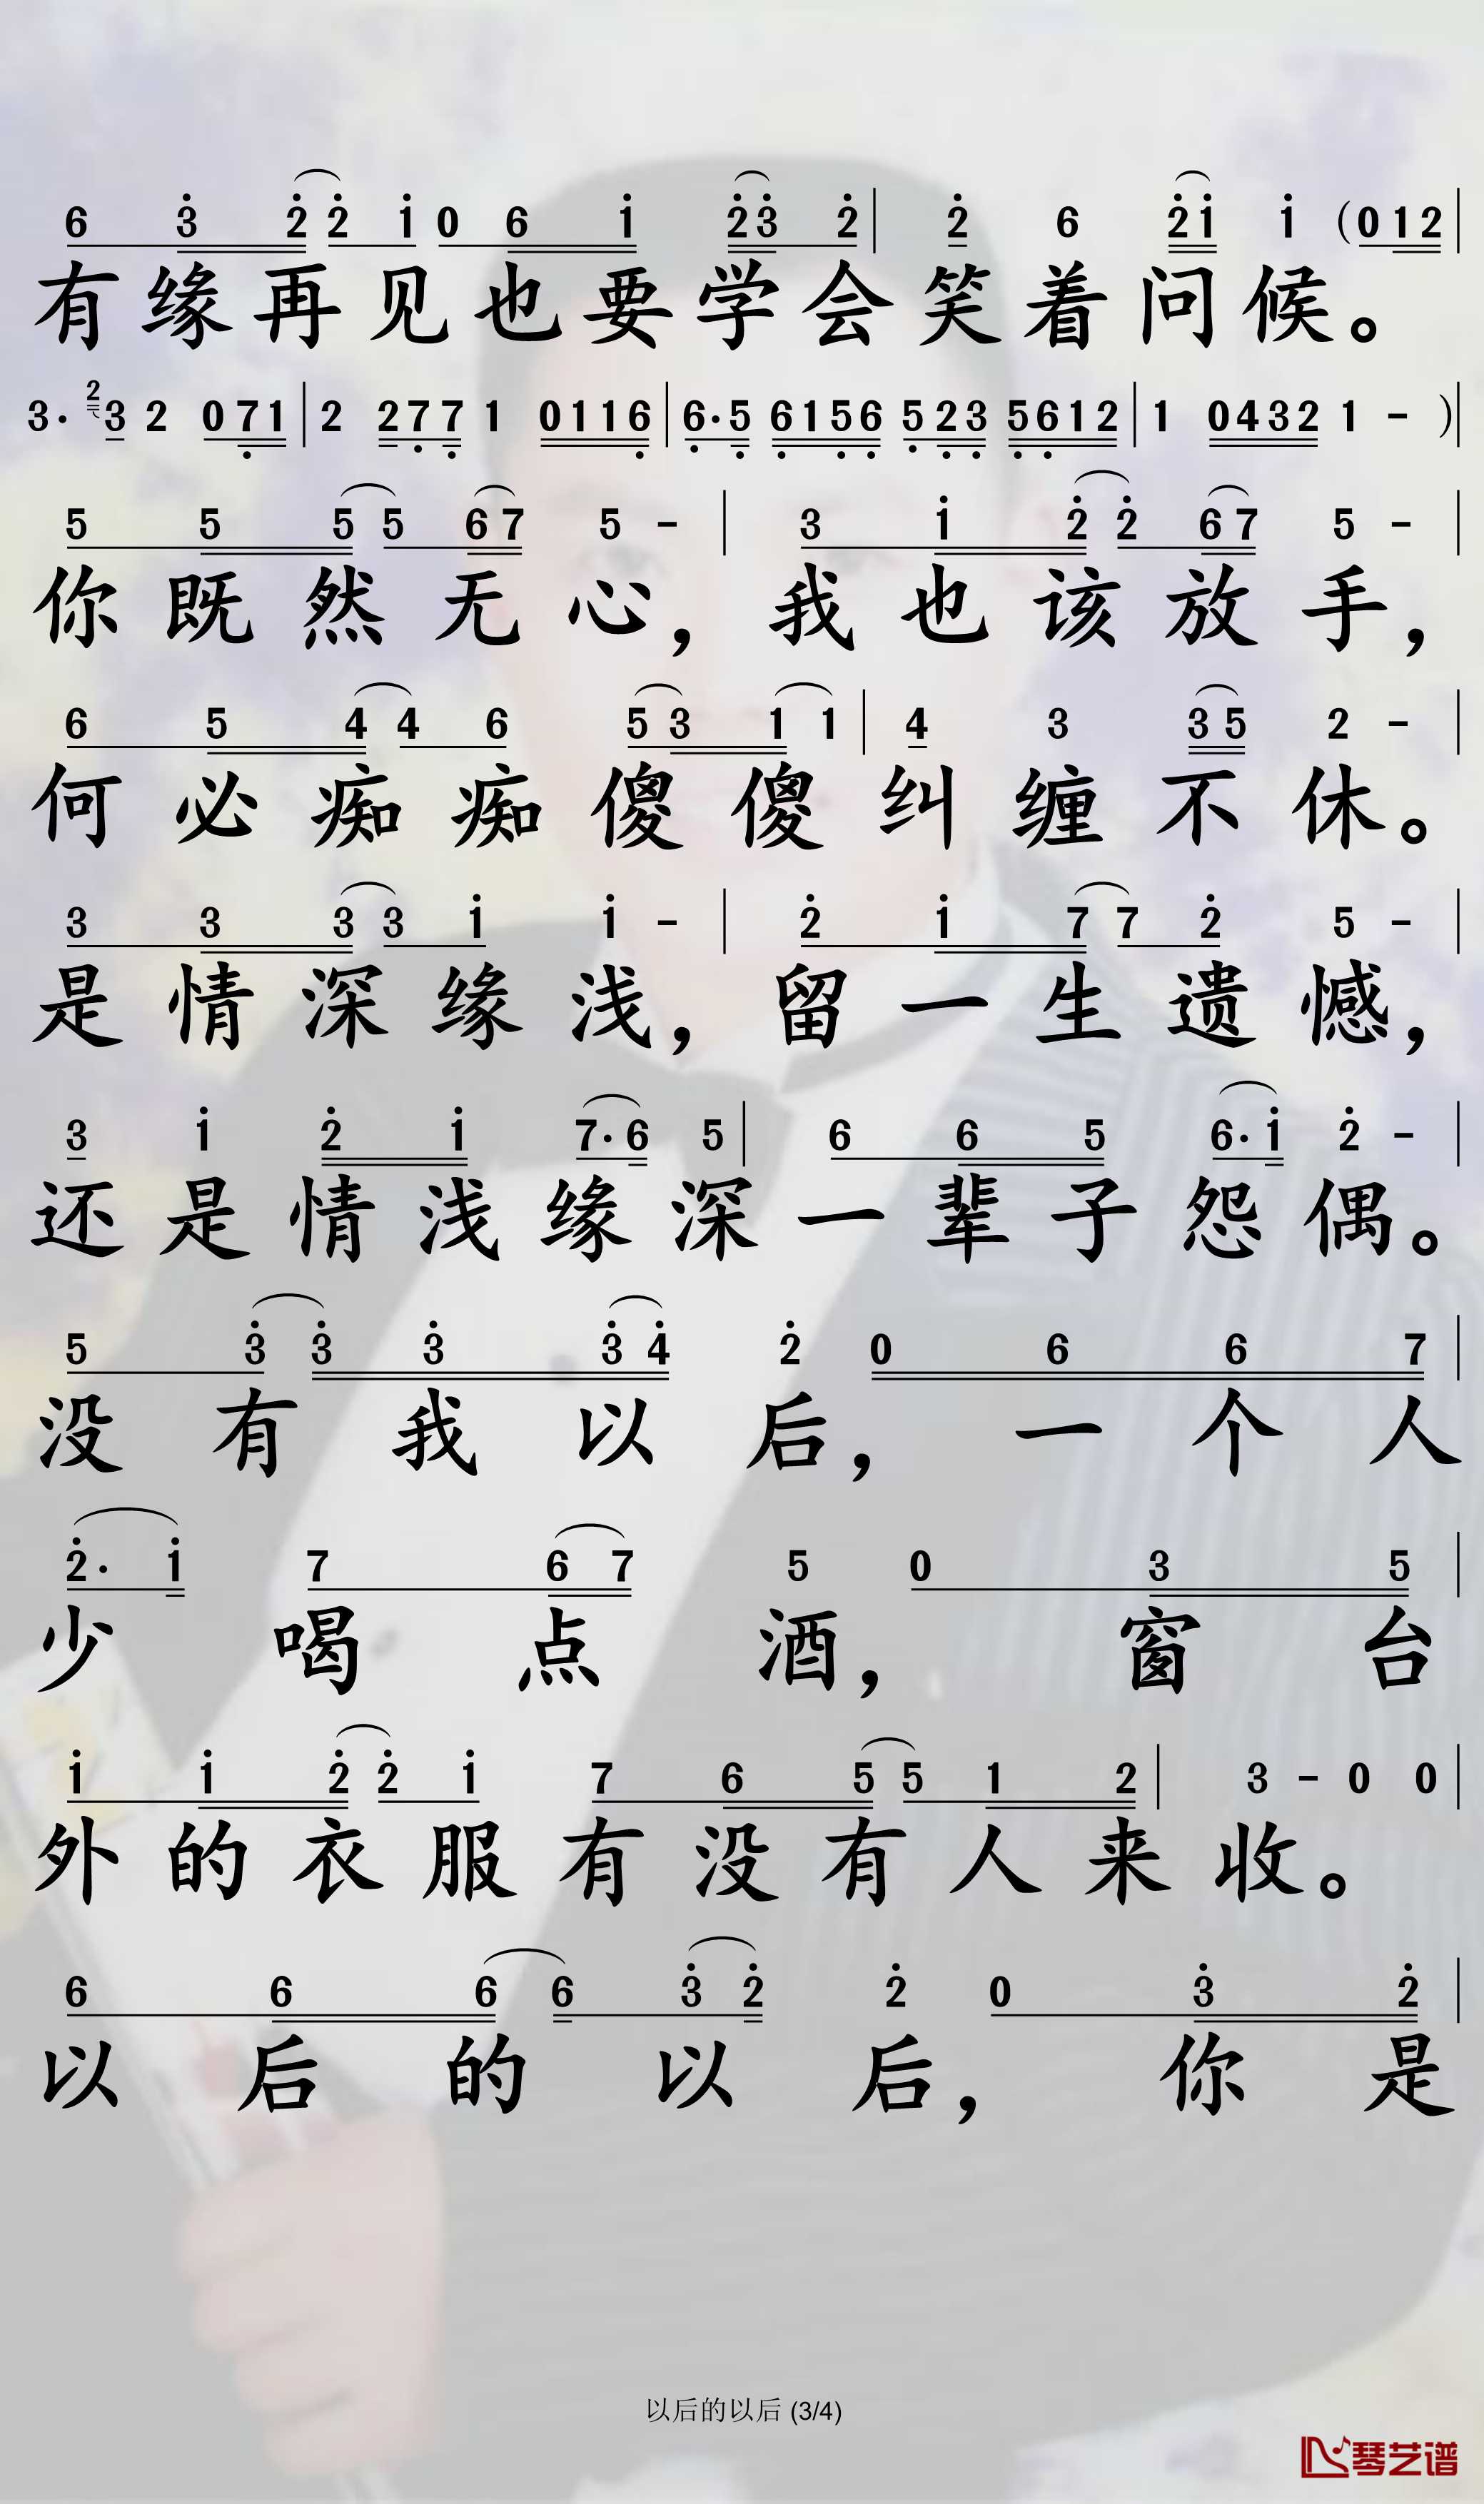 6 3̇ 2̇ 2̇ 1̇ 0 6 1̇ 2̇ 3̇ 2̇ | 2̇ 6 2̇ 1̇ 1̇ (0 1 2 |
有缘再见也要学会笑着问候。
3· 2 3 2 0 7̣ 1 | 2 2 7̣ 7̣ 1 0 1 1 6̣ | 6̣· 5̣ 6̣ 1 5̣ 6̣ 5̣ 2̣ 3̣ 5̣ 6̣ 1 2 | 1 0 4 3 2 1 - )|
5 5 5 5 6 7 5 - | 3 1̇ 2̇ 2̇ 6 7 5 - |
你既然无心，我也该放手，
6 5 4 4 6 5 3 1 1 | 4 3 3 5 2 - |
何必痴痴傻傻纠缠不休。
3 3 3 3 1̇ 1̇ - | 2̇ 1̇ 7 7 2̇ 5 - |
是情深缘浅，留一生遗憾，
3 1̇ 2̇ 1̇ 7· 6 5 | 6 6 5 6· 1̇ 2̇ - |
还是情浅缘深一辈子怨偶。
5 3̇ 3̇ 3̇ 3̇ 4̇ 2̇ 0 6 6 7 |
没有我以后，一个人
2̇· 1̇ 7 6 7 5 0 3 5 |
少喝点酒，窗台
1̇ 1̇ 2̇ 2̇ 1̇ 7 6 5 5 1 2 | 3 - 0 0 |
外的衣服有没有人来收。
6 6 6 6 3̇ 2̇ 2̇ 0 3̇ 2̇ |
以后的以后，你是
以后的以后 (3/4)
琴艺谱